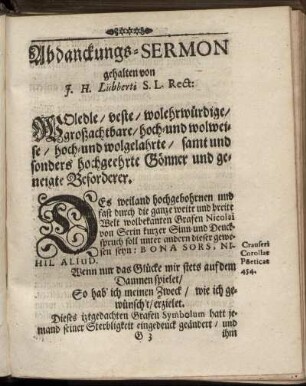 Abdanckungs-SERMON
gehalten von
J. H. Lübberti S. L. Rect:
WOledle / veste / wolehrwürdige /
großachtbare / hoch-und wolwei-
se / hoch-und wolgelahrte / samt und
sonders hochgeehrte Gönner und ge-
neigte Beforderer.
DEs weiland hochgebohrnen und
fast durch die gantze weite und breite
Welt wolbekanten Grafen Nicolai
von Serin kurtzer Sinn-und Denck-
spruch soll unter andern dieser gewe-
sen seyn: BONA SORS, NI-
HIL ALIUD.
Crauseri
Corollae
Pöeticae
454.
Wenn nur das Glücke mir stets auf dem
Daumen spielet /
So hab' ich meinen Zweck / wie ich ge-
wünscht / erzielet.
Dieses itztgedachten Grafen Symbolum hatt je-
mand seiner Sterbligkeit eingedenck geändert / und
G 3
ihm